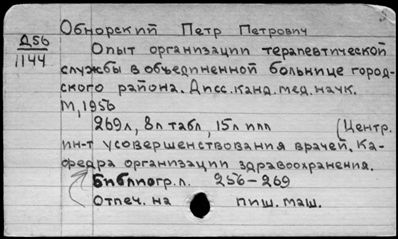 Обнорский Петр Петрович
Д56
1144
Опыт организации терапевтической
службы в объединенной больнице город-
ского района. Дисс. канд. мед. наук.
М, 1956
269л, 8л табл, 15л илл
(Центр.
ин-т усовершенствования врачей. Ка-
федра организации здравоохранения.
Библиогр. л. 256-269
Отпеч. на пиш. маш.